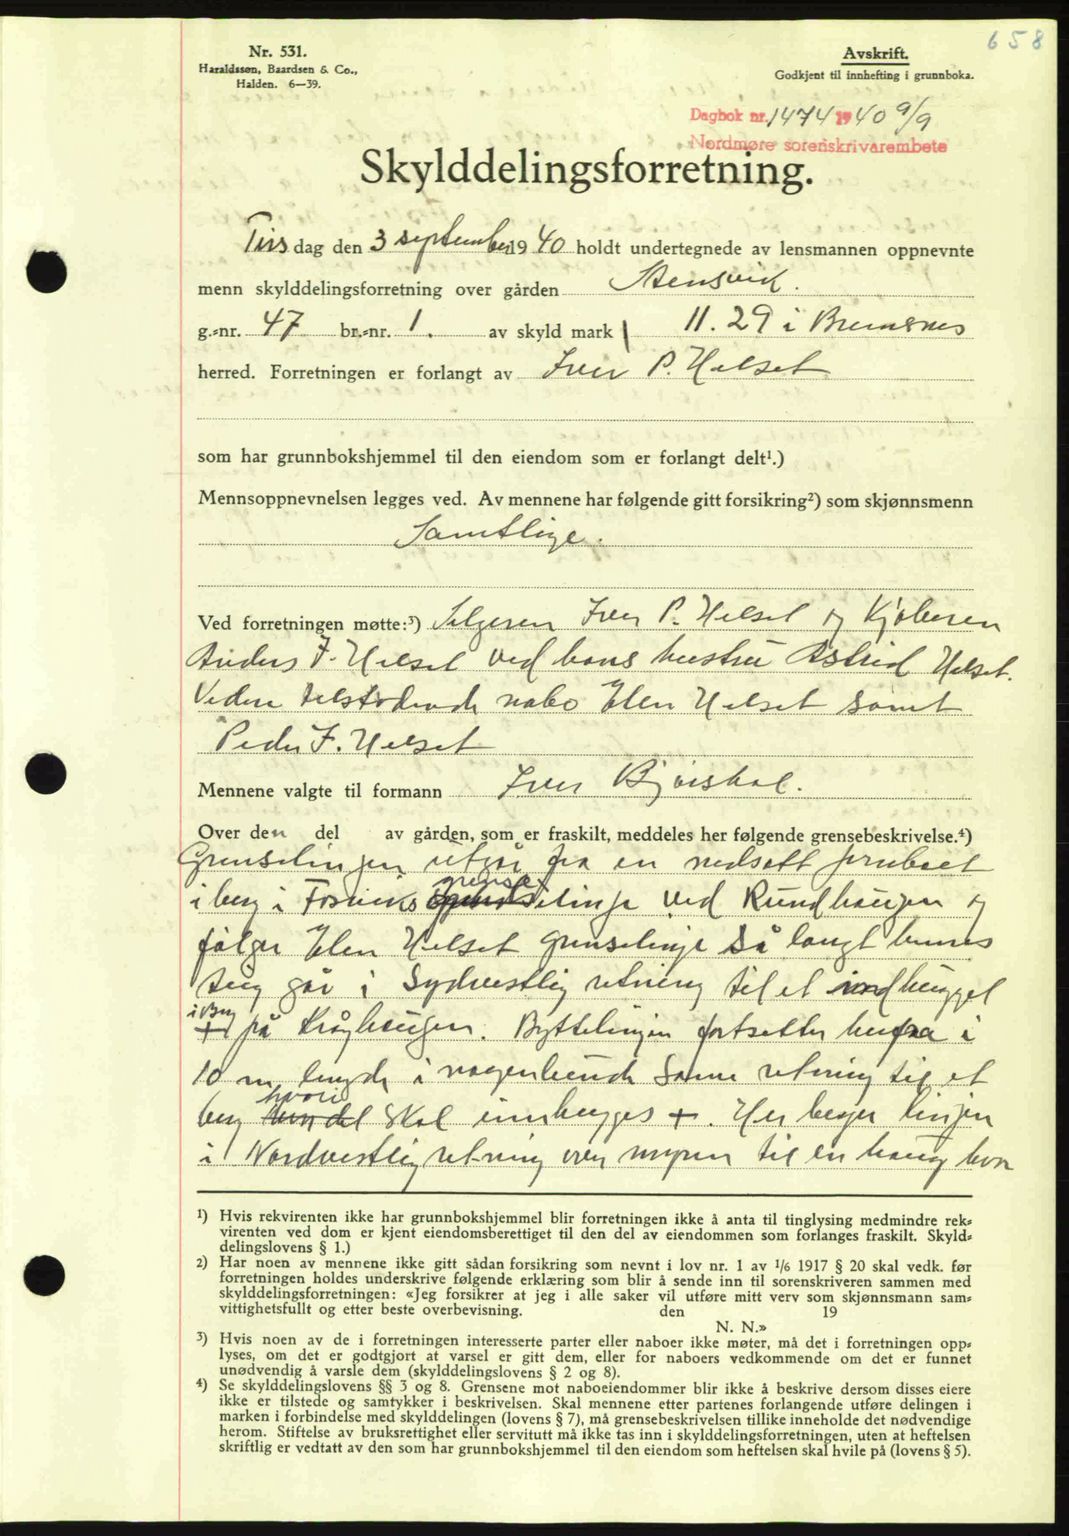 658
Nr. 531.
Haraldssøn, Baardsen & Co.,
Halden. 6—39.
Avskrift.
Godkjent til innhefting i grunnboka.
Dagbok nr. 1474 1940 9/9
Nordmøre sorenskrivarembete
Skylddelingsforretning.
Tirsdag den 3 september 1940 holdt undertegnede av lensmannen oppnevnte
menn skylddelingsforretning over gården Stensvik.
g.-nr. 47 br.-nr. 1. av skyld mark 11.29 i Bremsnes
herred. Forretningen er forlangt av Iver P. Helset
som har grunnbokshjemmel til den eiendom som er forlangt delt¹.)
Mennsoppnevnelsen legges ved. Av mennene har følgende gitt forsikring²) som skjønnsmenn
Samtlige.
Ved forretningen møtte:³) Selgeren Iver P. Helset og Kjøberen
Anders I. Helset ved hans hustru Astrid Helset.
Videre tilstødende nabo Elen Helset samt
Peder I. Helset
Mennene valgte til formann Iver
Over den del av gården, som er fraskilt, meddeles her følgende grensebeskrivelse.⁴)
Grenselinjen utgår fra en nedsatt jernbolt
i berg i grense linje ved Rundhaugen og
følger Elen Helset grenselinje så langt hennes
teig går i Sydvestlig retning til et indhugget
i Berg + på Kråghaugen. Byttelinjen fortsetter herfra i
10 m lengde i nogenlunde samme retning til et
berg hvori skal innhugges +. Her bøyer linjen
i Nordvestlig retning over myren til en haug hvor
¹) Hvis rekvirenten ikke har grunnbokshjemmel blir forretningen ikke å anta til tinglysing medmindre rek-
virenten ved dom er kjent eiendomsberettiget til den del av eiendommen som forlanges fraskilt. Skyld-
delingslovens § 1.)
²) Har noen av mennene ikke gitt sådan forsikring som nevnt i lov nr. 1 av 1/6 1917 § 20 skal vedk. før
forretningen holdes underskrive følgende erklæring som blir å sende inn til sorenskriveren sammen med
skylddelingsforretningen: «Jeg forsikrer at jeg i alle saker vil utføre mitt verv som skjønnsmann sam-
vittighetsfullt og etter beste overbevisning. den 19
N. N.»
³) Hvis noen av de i forretningen interesserte parter eller naboer ikke møter, må det i forretningen opp-
lyses, om det er godtgjort at varsel er gitt dem, eller for naboers vedkommende om det er funnet
unødvendig å varsle dem (skylddelingslovens § 2 og 8).
⁴) Se skylddelingslovens §§ 3 og 8. Grensene mot naboeiendommer blir ikke å beskrive dersom disses eiere
ikke er tilstede og samtykker i beskrivelsen. Skal mennene etter partenes forlangende utføre delingen i
marken i forbindelse med skylddelingen (lovens § 7), må grensebeskrivelsen tillike inneholde det nødvendige
herom. Stiftelse av bruksrettighet eller servitutt må ikke tas inn i skylddelingsforretningen, uten at heftelsen
skriftlig er vedtatt av den som har grunnbokshjemmel til den eiendom som heftelsen skal hvile på (lovens § 5).